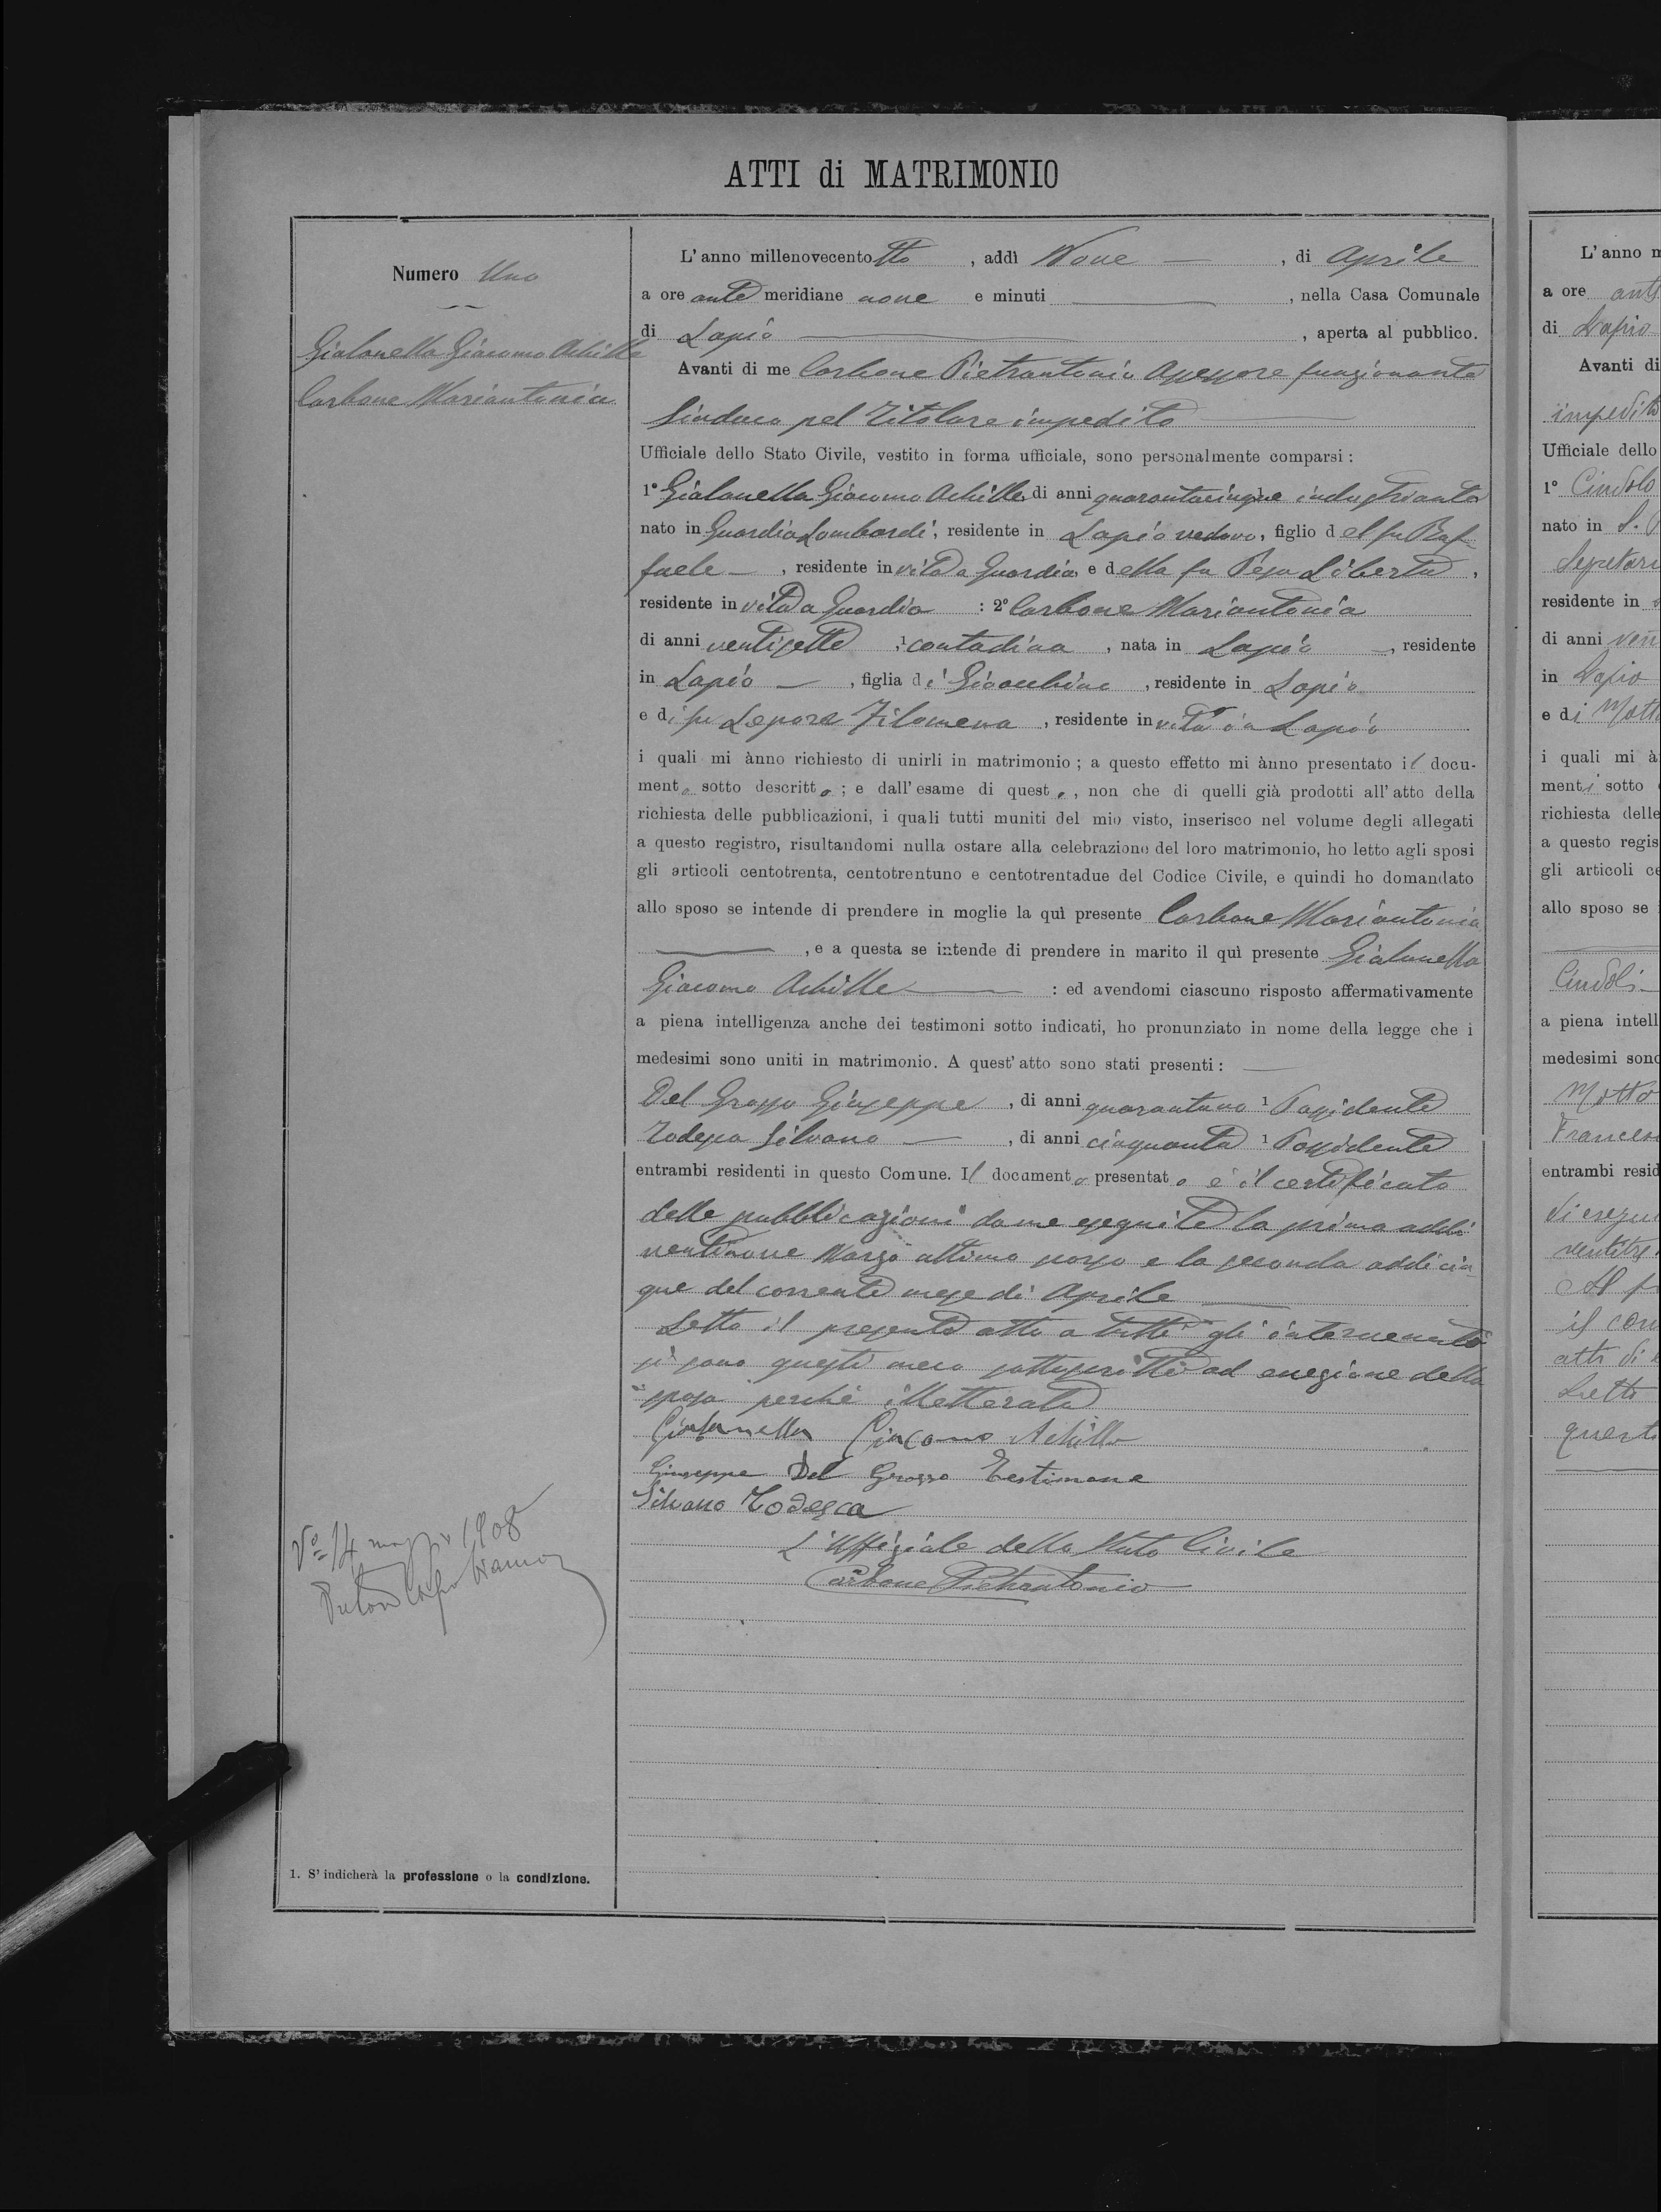 ATTI di MATRIMONIO
Numero Uno
Gialanella Giacomo Achille
Carbone Mariantonia
L'anno millenovecentotto, addì Nove, di Aprile
a ore ante meridiane nove e minuti, nella Casa Comunale
di Lapio, aperta al pubblico.
Avanti di me Carbone Pietrantonio Assessore funzionante
Sindaco pel Titolare impedito
Ufficiale dello Stato Civile, vestito in forma ufficiale, sono personalmente comparsi:
1° Gialanella Giacomo Achille, di anni quarantacinque industriante
nato in Guardia Lombardi, residente in Lapio vedovo, figlio del fu Raf-
faele, residente in vita a Guardia e della fu Pesa Liberta,
residente in vita a Guardia: 2° Carbone Mariantonia
di anni ventisette, 1 contadina, nata in Lapio, residente
in Lapio, figlia di Gioacchino, residente in Lapio
e di fu Lepore Filomena, residente in vita in Lapio
i quali mi ànno richiesto di unirli in matrimonio; a questo effetto mi ànno presentato il docu-
mento sotto descritto; e dall'esame di questo, non che di quelli già prodotti all'atto della
richiesta delle pubblicazioni, i quali tutti muniti del mio visto, inserisco nel volume degli allegati
a questo registro, risultandomi nulla ostare alla celebrazione del loro matrimonio, ho letto agli sposi
gli articoli centotrenta, centotrentuno e centotrentadue del Codice Civile, e quindi ho domandato
allo sposo se intende di prendere in moglie la quì presente Carbone Mariantonia
, e a questa se intende di prendere in marito il quì presente Gialanella
Giacomo Achille: ed avendomi ciascuno risposto affermativamente
a piena intelligenza anche dei testimoni sotto indicati, ho pronunziato in nome della legge che i
medesimi sono uniti in matrimonio. A quest'atto sono stati presenti:
Del Grosso Giuseppe, di anni quarantuno 1 Possidente
Todesca Silvano, di anni cinquanta 1 Possidente
entrambi residenti in questo Comune. Il documento presentato è il certificato
delle pubblicazioni da me eseguite la prima addì
ventinove Marzo ultimo scorso e la seconda addì cin-
que del corrente mese di Aprile
Letto il presente atto a tutti gli intervenuti
si sono questi meco sottoscritti ad eccezione della
sposa perché illetterata
Gialanella Giacomo Achille
Giuseppe Del Grosso Testimone
Silvano Todesca
L'Uffiziale dello Stato Civile
Carbone Pietrantonio
V° 14 maggio 1908
1. S'indicherà la professione o la condizione.
L'anno m
a ore ant
di Lapio
Avanti di
impedito
Ufficiale dello
1° Cindolo
nato in S.
Segretari
residente in
di anni ven
in Lapio
e di Motto
i quali mi à
menti sotto
richiesta delle
a questo regis
gli articoli ce
allo sposo se
Cindoli
a piena intell
medesimi sono
Motto
Francesc
entrambi resid
di esegui
ventitre
il com
atti di
Letto
questi